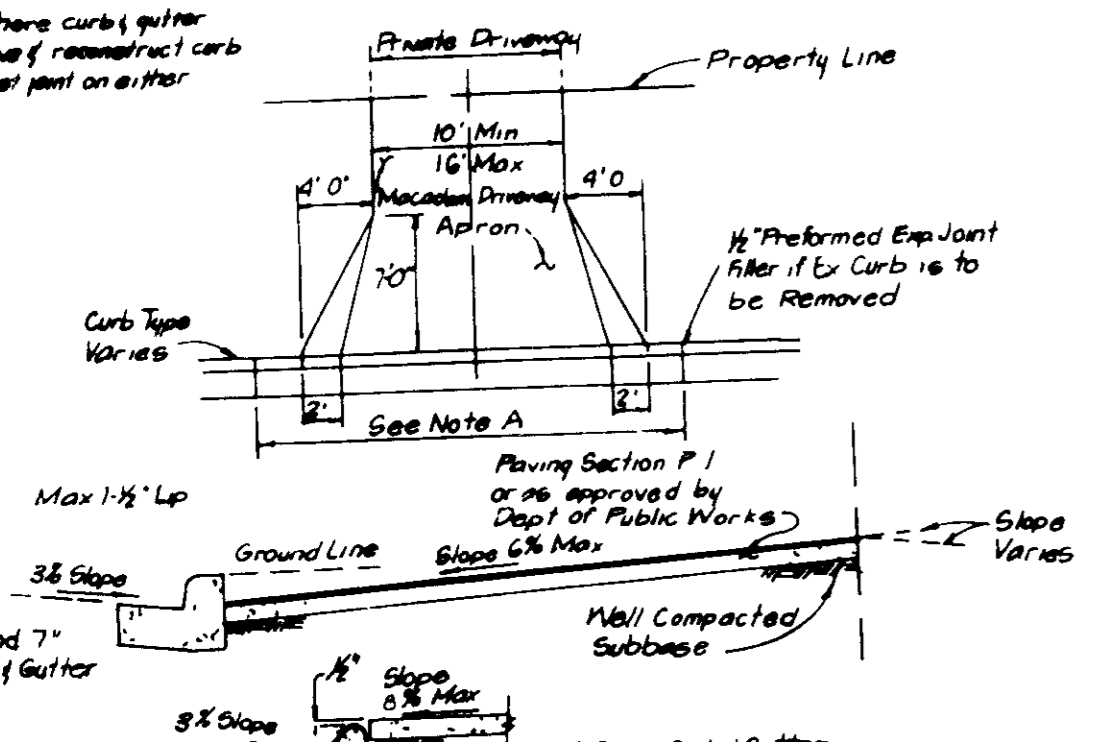 here curb & gutter
& reconstruct curb
joint on either
Private Driveway
Property Line
10' Min
16' Max
4' 0"
4' 0
Macadam Driveway
Apron
7'-0"
1/2" Preformed Exp. Joint
Filler if Ex Curb is to
be Removed
Curb Type
Varies
2'
2'
See Note A
Max 1-1/2" Lip
Paving Section P 1
or as approved by
Dept of Public Works
Ground Line
Slope 6% Max
Slope
Varies
3% Slope
7"
& Gutter
Well Compacted
Subbase
1/2"
Slope
8% Max
3% Slope